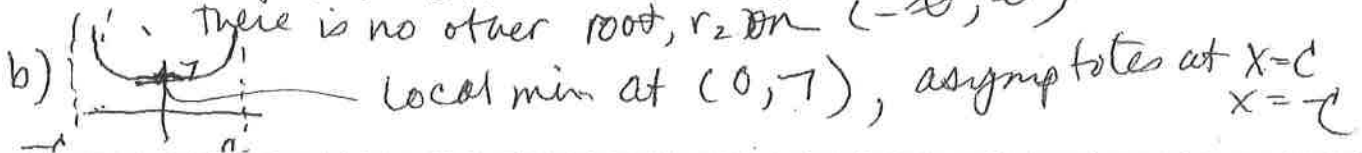 ∴ There is no other root, r₂ on (-∞, ∞)
b) 7 Local min at (0,7), asymptotes at x=c
x=-c
-c c